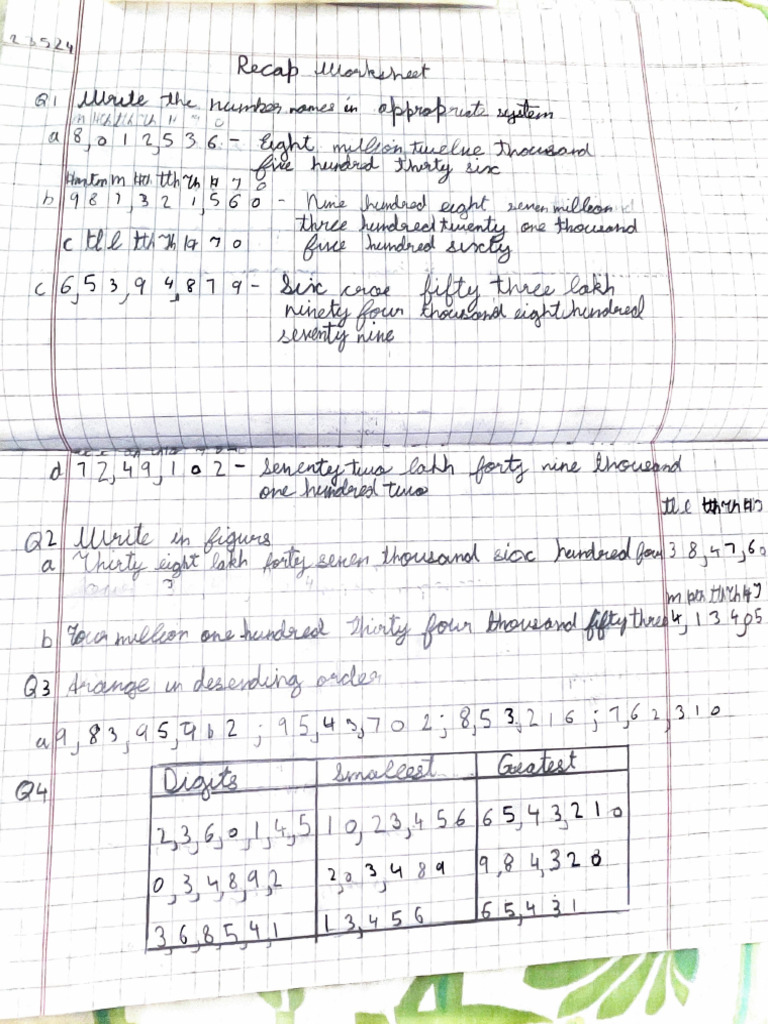 23524
Recap Worksheet
Q1 Write the number names in appropriate system
a 8,012,536 - Eight million twelve thousand
five hundred thirty six
b 981,321,560 - Nine hundred eight seven million
three hundred twenty one thousand
c tl l tth Th H T O five hundred sixty
c 6,53,94,879 - Six croe fifty three lakh
ninety four thousand eight hundred
seventy nine
d 72,49,102 - Seventy two lakh forty nine thousand
one hundred two
Q2 Write in figurs
a Thirty eight lakh forty seven thousand six hundred four 38,47,60
b Four million one hundred thirty four thousand fifty three 4,134,05
Q3 Arange in desending order
a 9,83,95,462 ; 95,43,702 ; 8,53,216 ; 7,62,310
Q4 Digits Smallest Greatest
2,3,6,0,1,4,5 10,23,456 65,43,210
0,3,4,8,9,2 2,03,489 9,84,320
3,6,8,5,4,1 13,456 65,431